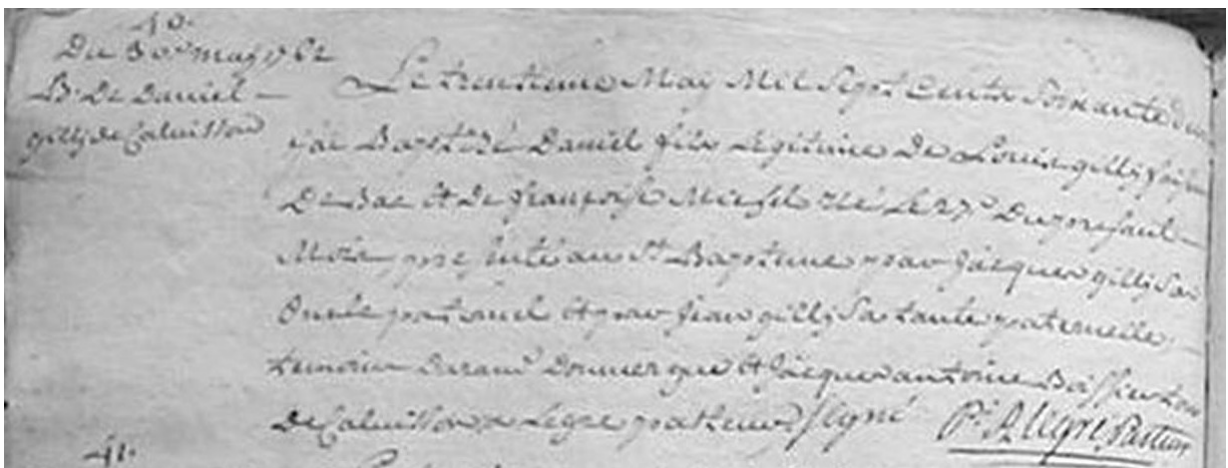 40.
Du 30e may 1762
B. De Daniel
gilly de Calvisson
Le trentieme May Mil Sept Cents Soixante deux
j'ai Baptisé Daniel fils Legitime De Louis gilly
De Bas et De françoise né Le 27e Du présent
Mois présenté au St Bapteme par Jacques gilly Son
Oncle paternel et par gilly Sa tante paternelle
temoins Durand et Jacques antoine
De Calvisson Signé P. Allegre Pasteur
41.